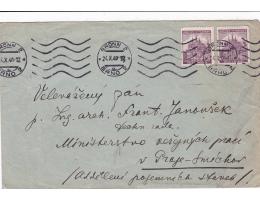 BRÜNN 2
24.X.40-18
BRNO 2
Velevážený pan
p. Ing. arch. Frant. Janoušek
techn. rada
Ministerstvo veřejných prací
v Praze-Smíchov
/oddělení pojemních staveb/